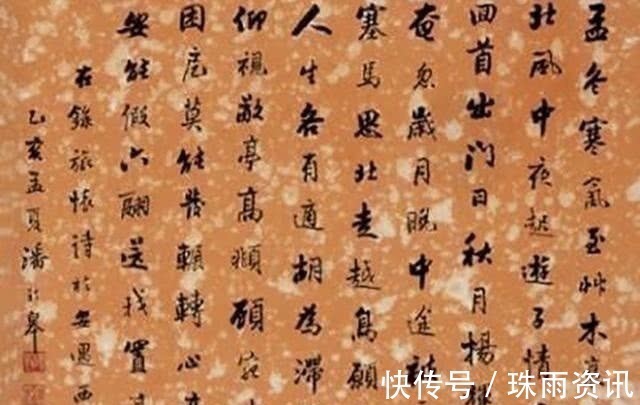 孟冬寒氣至艸木
北風中夜起遊子情
回首出門日秋月楊
奄忽歲月晚中途
塞馬思北走越鳥願
人生各有適胡為滯
仰視敞亭高頫顧宛
困厄莫能發輾轉心
安能假六翮送我置
右錄旅懷詩於安西
乙亥孟夏潘齡皋
快传号/珠雨资讯